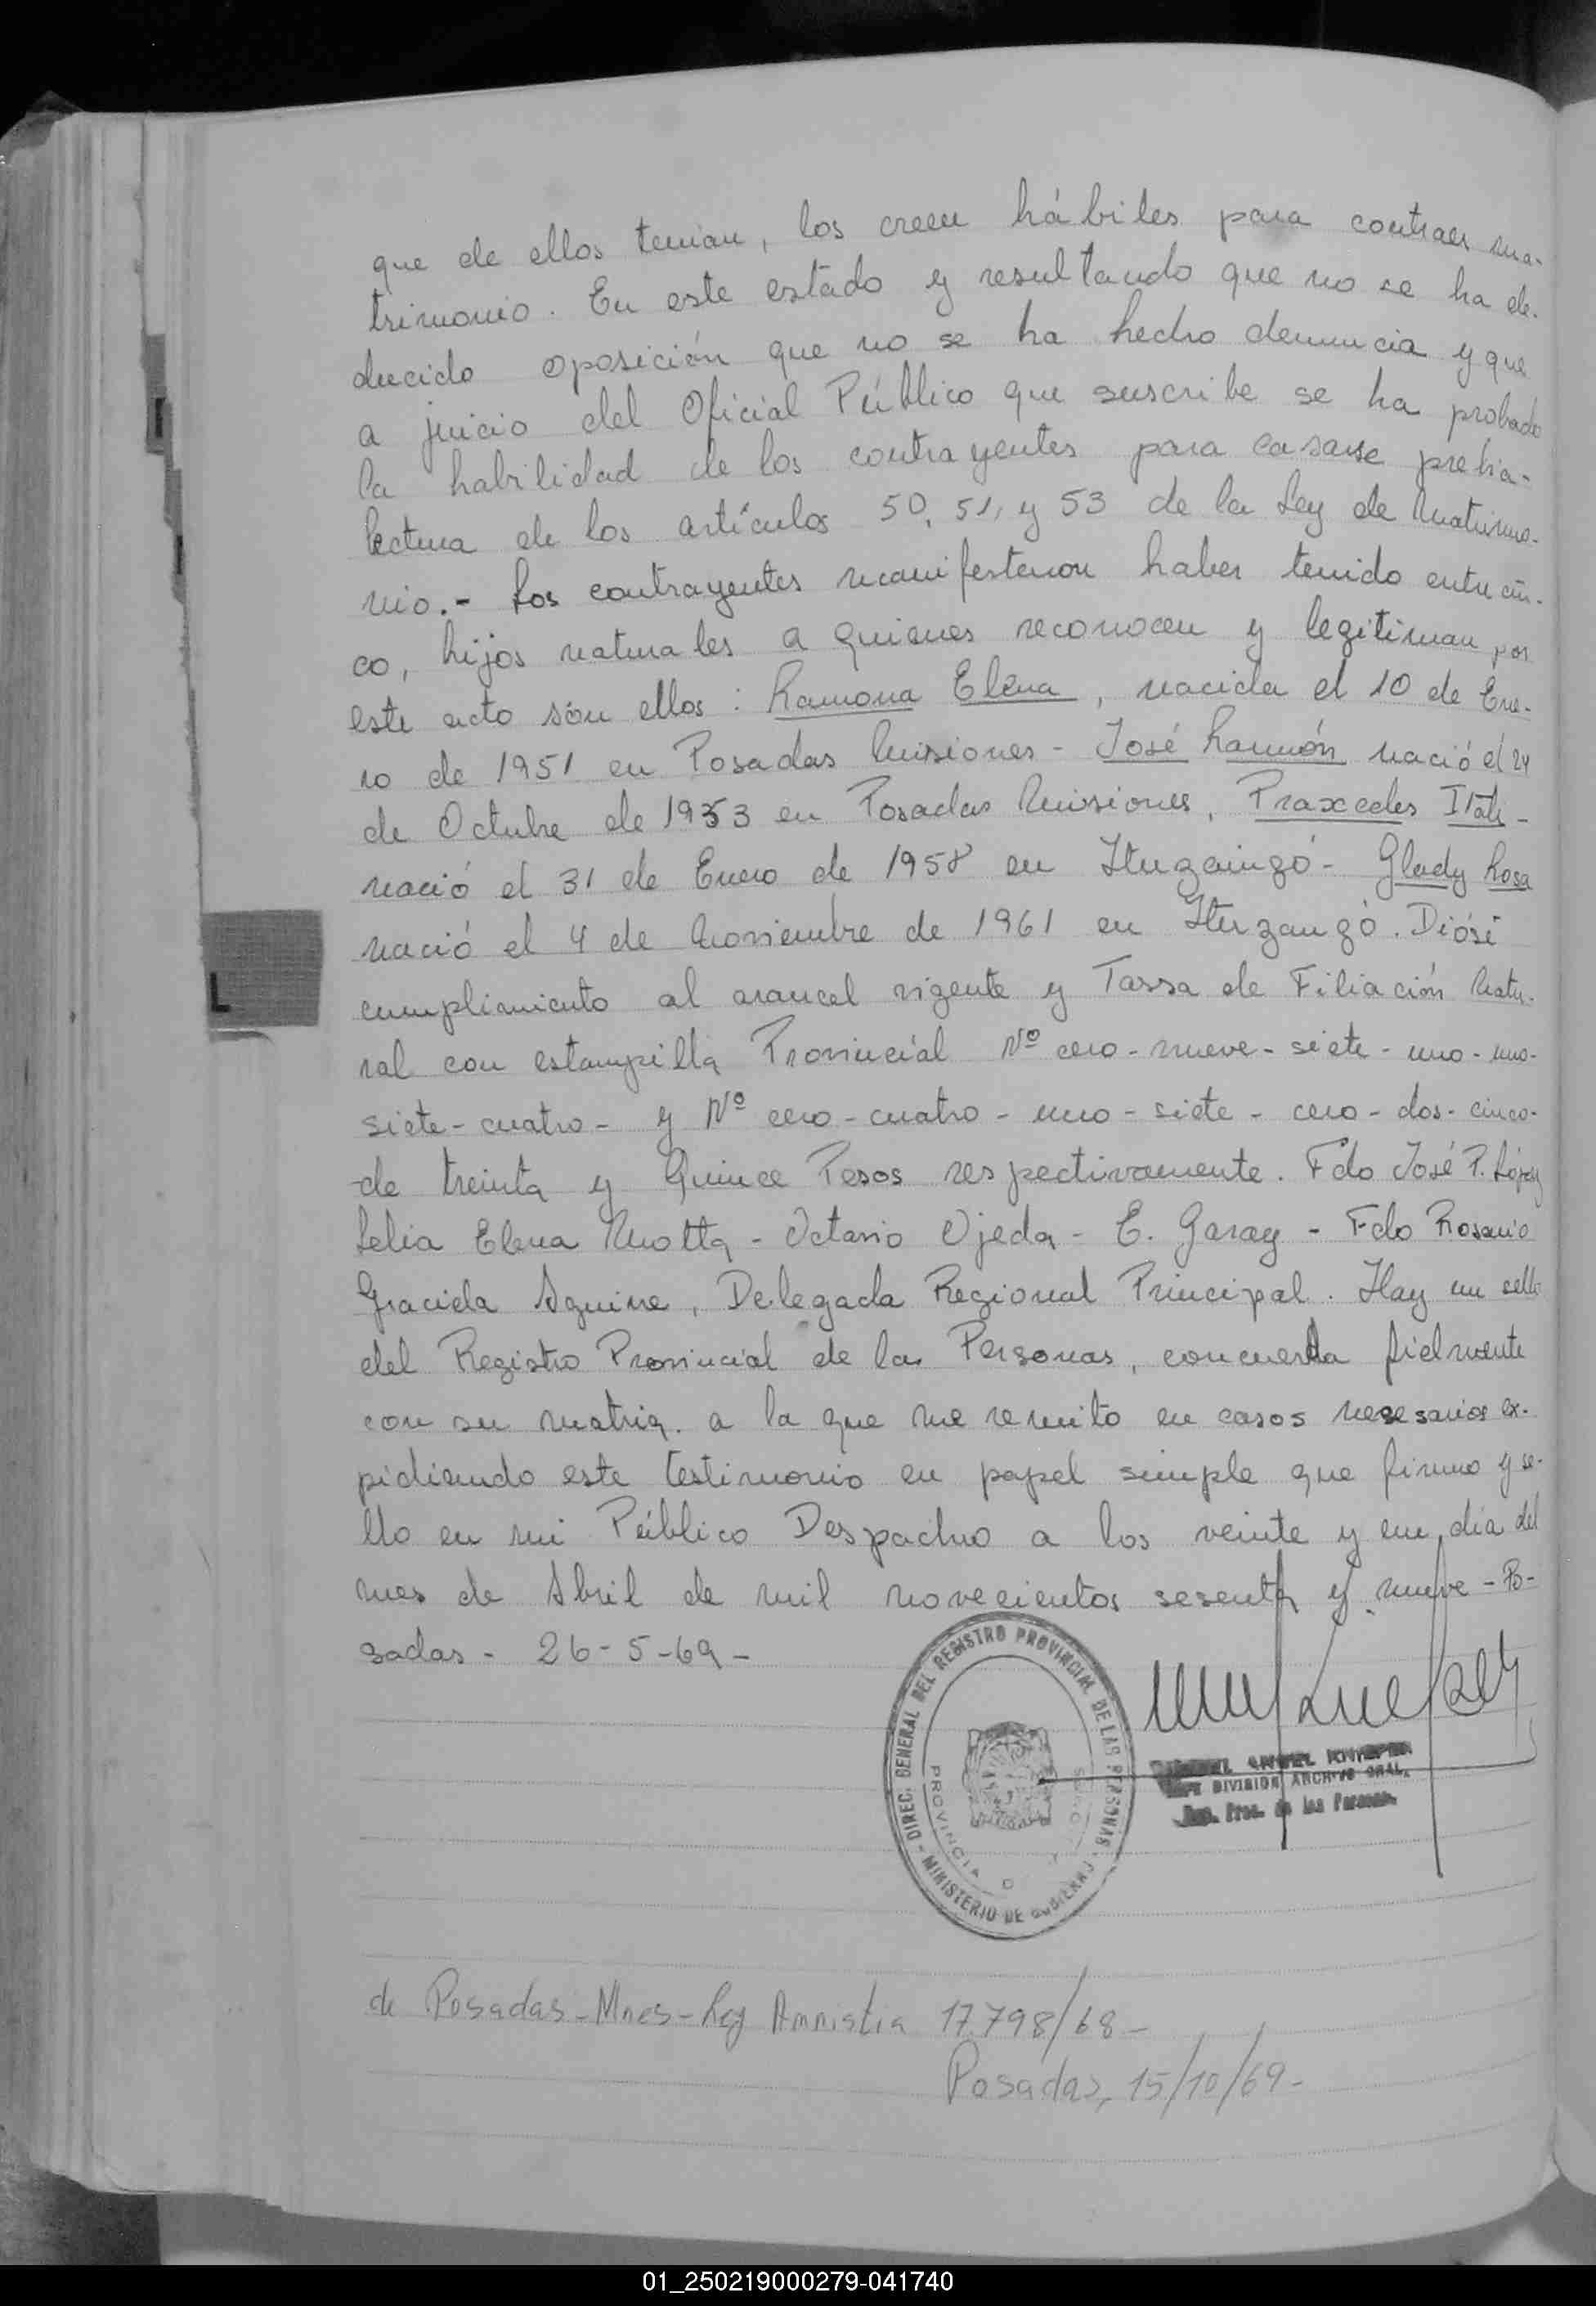 que de ellos tenian, los creen hábiles para contraer ma-
trimonio. En este estado y resultando que no se ha de-
ducido oposición que no se ha hecho denuncia y que
a juicio del Oficial Público que suscribe se ha probado
la habilidad de los contrayentes para casarse previa-
lectura de los artículos 50, 51, y 53 de la Ley de Matrimo-
nio.- Los contrayentes manifestaron haber tenido entre cin-
co, hijos naturales a quienes reconocen y legitiman por
este acto són ellos : Ramona Elena, nacida el 10 de Ene-
ro de 1951 en Posadas Misiones - José Ramón nació el 24
de Octubre de 1953 en Posadas Misiones, Praxedes Itati -
nació el 31 de Enero de 1958 en Ituzaingó - Glady Rosa
nació el 4 de Noviembre de 1961 en Ituzangó. Diósé
cumplimiento al arancel vigente y Tassa de Filiación Natu-
ral con estampilla Provincial Nº cero-nueve-siete-uno-uno-
siete-cuatro- y Nº cero-cuatro-uno-siete-cero-dos-cinco-
de treinta y Quince Pesos respectivamente. Fdo José P. López
Lelia Elena Motta - Octavio Ojeda - E. Garay - Fdo Rosario
Graciela Aguirre, Delegada Regional Principal. Hay un sello
del Registro Provincial de las Personas, concuerda fielmente
con su matriz. a la que me remito en casos nesesarios ex-
pidiendo este testimonio en papel simple que firmo y se-
llo en mi Público Despacho a los veinte y un dia del
mes de Abril de mil novecientos sesenta y nueve - Po-
sadas - 26-5-69-
DIREC. GENERAL DEL REGISTRO PROVINCIAL DE LAS PERSONAS - MINISTERIO DE GOBIERNO
PROVINCIA D
ANGEL
JEFE DIVISION ARCHIVO GRAL.
Reg. Prov. de las Personas
de Posadas-Mnes-Ley Amnistia 17.798/68-
Posadas, 15/10/69-
L
01_250219000279-041740